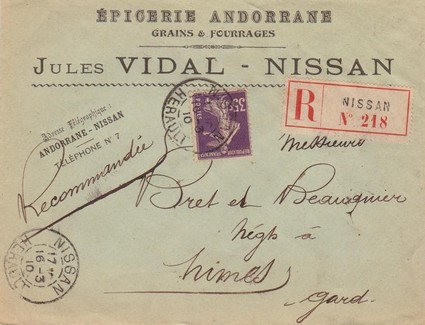 ÉPICERIE ANDORRANE
GRAINS & FOURRAGES
JULES VIDAL - NISSAN
Adresse Télégraphique:
ANDORRANE-NISSAN
TÉLÉPHONE N° 7
Recommandée
NISSAN
HÉRAULT
35c
REPUBLIQUE FRANÇAISE
R
NISSAN
N° 218
Messieurs
Bret et Beauquier
Négts à
Nimes
Gard.
NISSAN
17
16-3
10
HÉRAULT